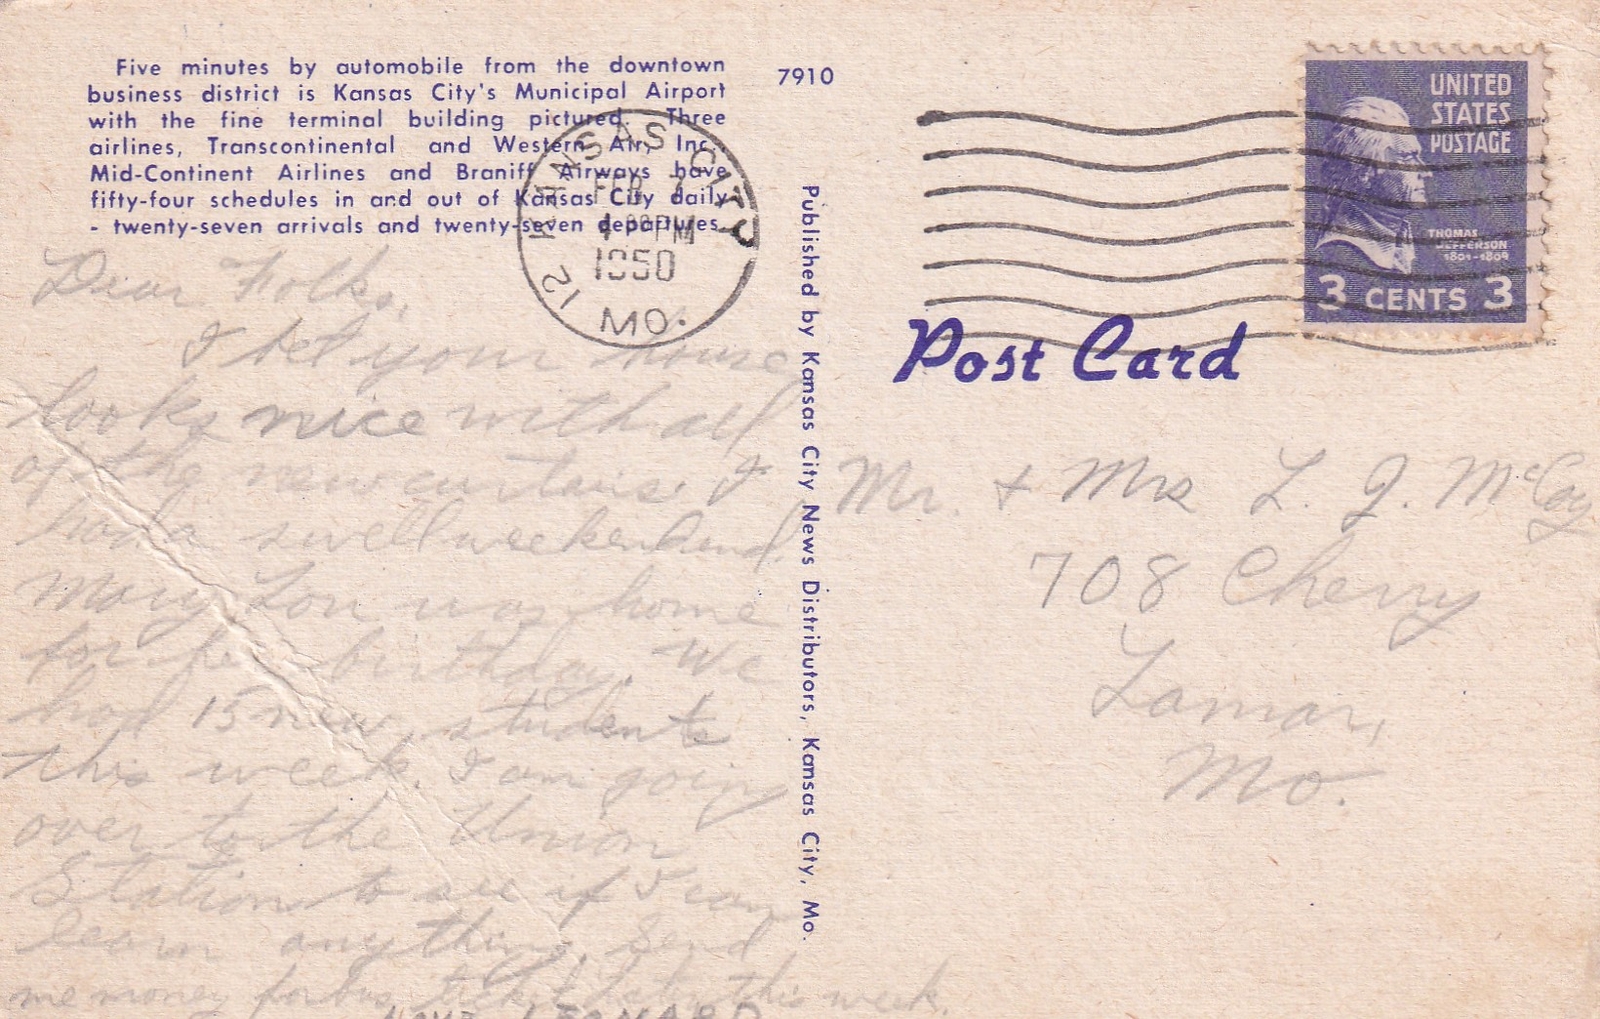 Five minutes by automobile from the downtown
business district is Kansas City's Municipal Airport
with the fine terminal building pictured. Three
airlines, Transcontinental and Western Air, Inc.,
Mid-Continent Airlines and Braniff Airways have
fifty-four schedules in and out of Kansas City daily
- twenty-seven arrivals and twenty-seven departures.
7910
KANSAS CITY
FEB 7
PM
1950
12
MO.
Dear Folks,
I bet your house
looks nice with all
of the new curtains. I
had a swell weekend.
Mary Lou was home
for her birthday. We
had 15 new students
this week. I am going
over to the Union
Station to see if I can
learn anything. Send
me money for bus ticket this week.
LEONARD
Published by Kansas City News Distributors, Kansas City, Mo.
UNITED
STATES
POSTAGE
THOMAS
JEFFERSON
1801-1809
3 CENTS 3
Post Card
Mr. + Mrs L. J. McCoy
708 Cherry
Lamar,
Mo.